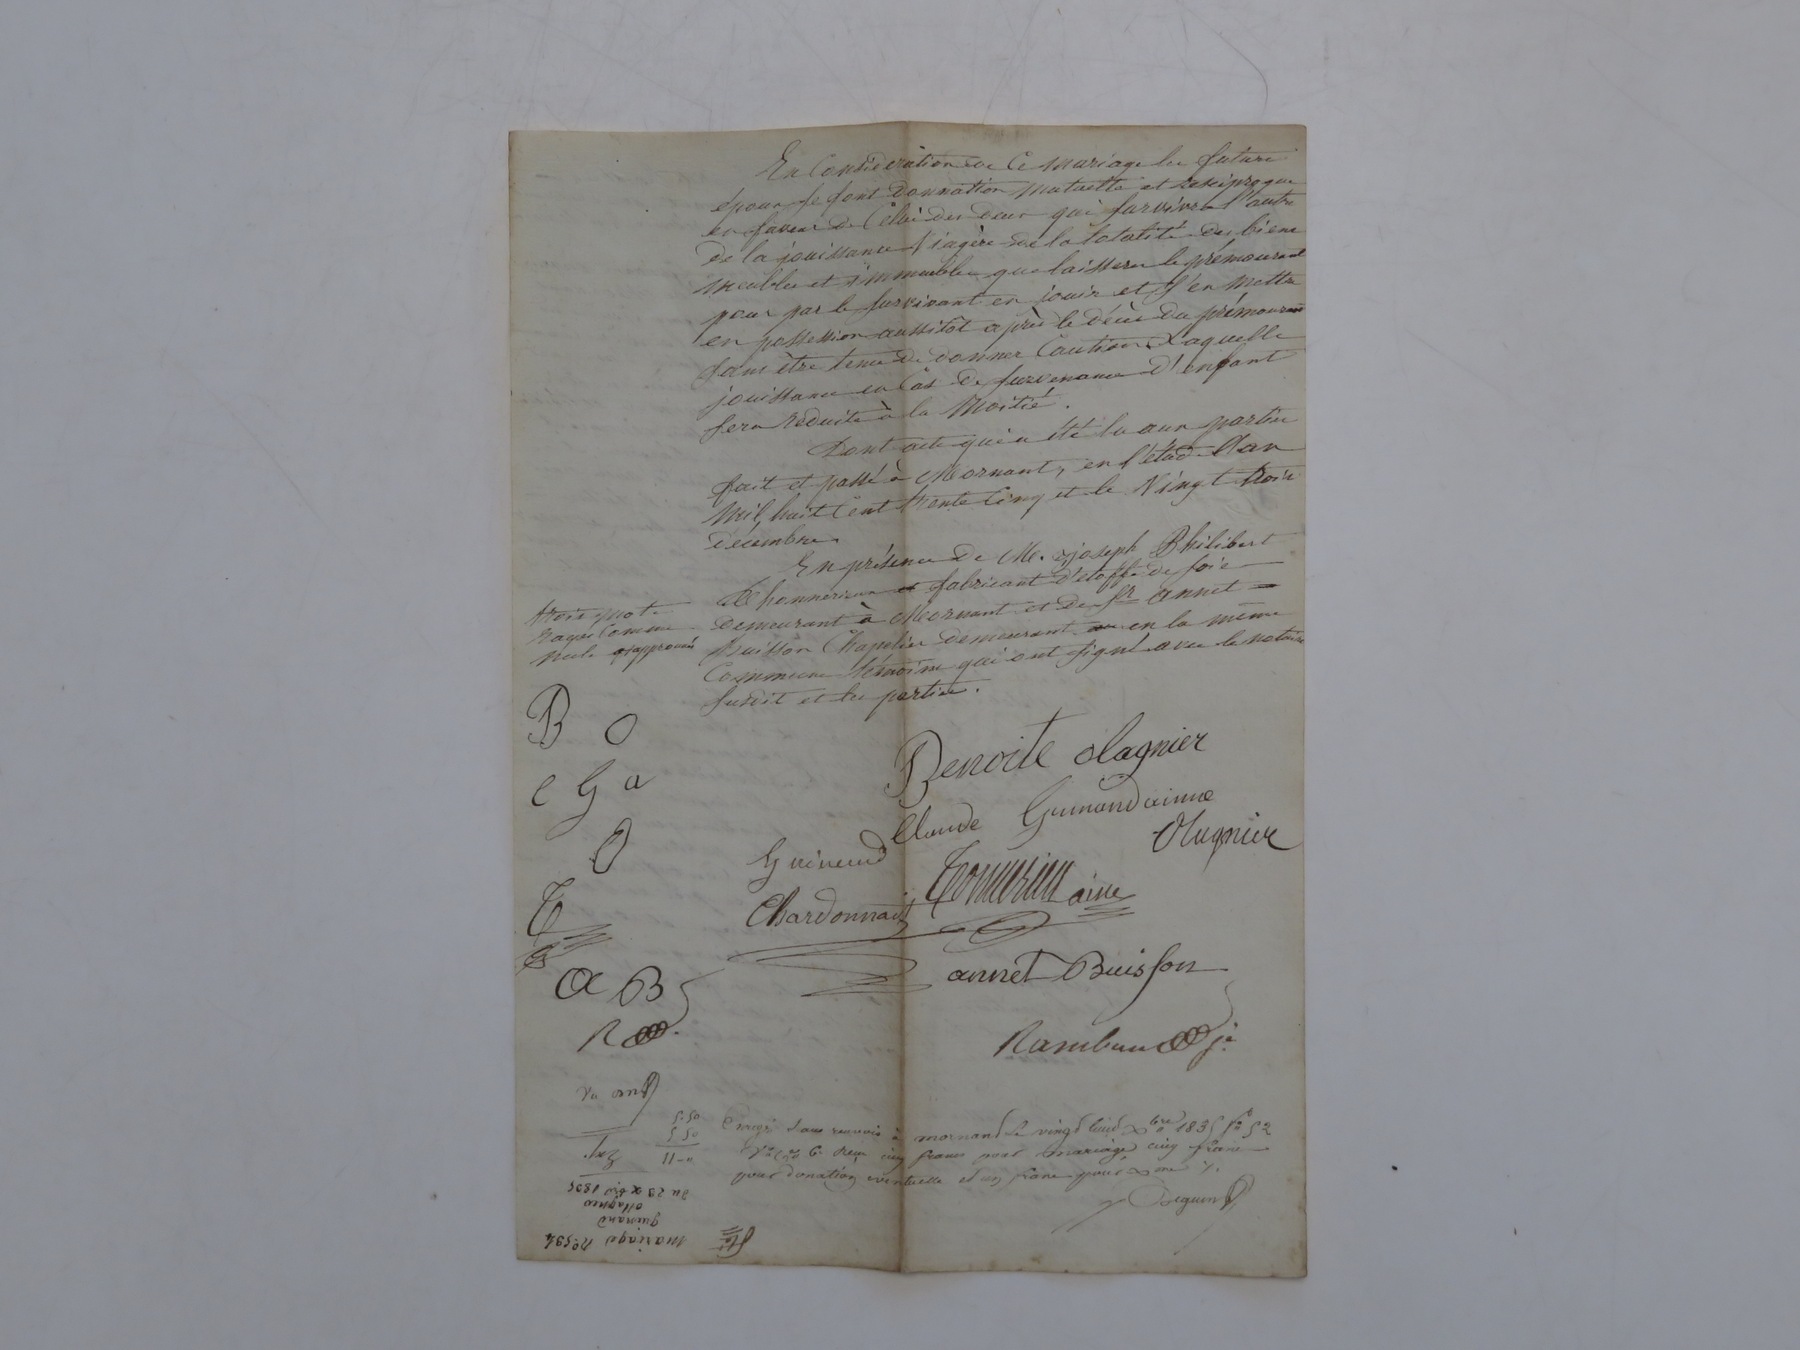 En Considération de Ce mariage les futurs
époux se font donnation mutuelle et réciproque
en faveur de Celui des deux qui survivra l'autre
de la jouissance Viagère de la totalité des biens
meubles et immeubles que laissera le prémourant
pour par le survivant en jouir et s'en mettre
en possession aussitôt après le décès du prémourant
sans être tenu de donner Caution, Laquelle
jouissance en Cas de survenance d'enfant
sera réduite à la Moitié.
Dont acte qui a été lu aux parties
fait et passé à Mornant, en l'étude L'an
Mil, huit Cent trente Cinq et le Vingt trois
décembre.
En présence de M. joseph Philibert
fabricant d'étoffe de soie
demeurant à Mornant et de Sr annet
Buisson Chapelier demeurant en la même
Commune témoins qui ont signé avec le notaire
susdit et les parties.
trois mots
rayés Comme
nuls approuvés
B O
C G a
O
T
A B
R
Benoite Olagnier
Claude Guinand ainné
Olagnier
Guinand
Chardonnait
ainé
annet Buisson
Rambaud je
5.50
5 50
11-"
Enregé sans renvois à mornant le vingt huit Xbre 1835 fo 52
Vo Ces 6. Reçu cinq francs pour mariage cinq francs
pour donation éventuelle et un franc pour Xme %.
Seguin
mariage No 594
guinand
ollagnier
du 23 Xbre 1835